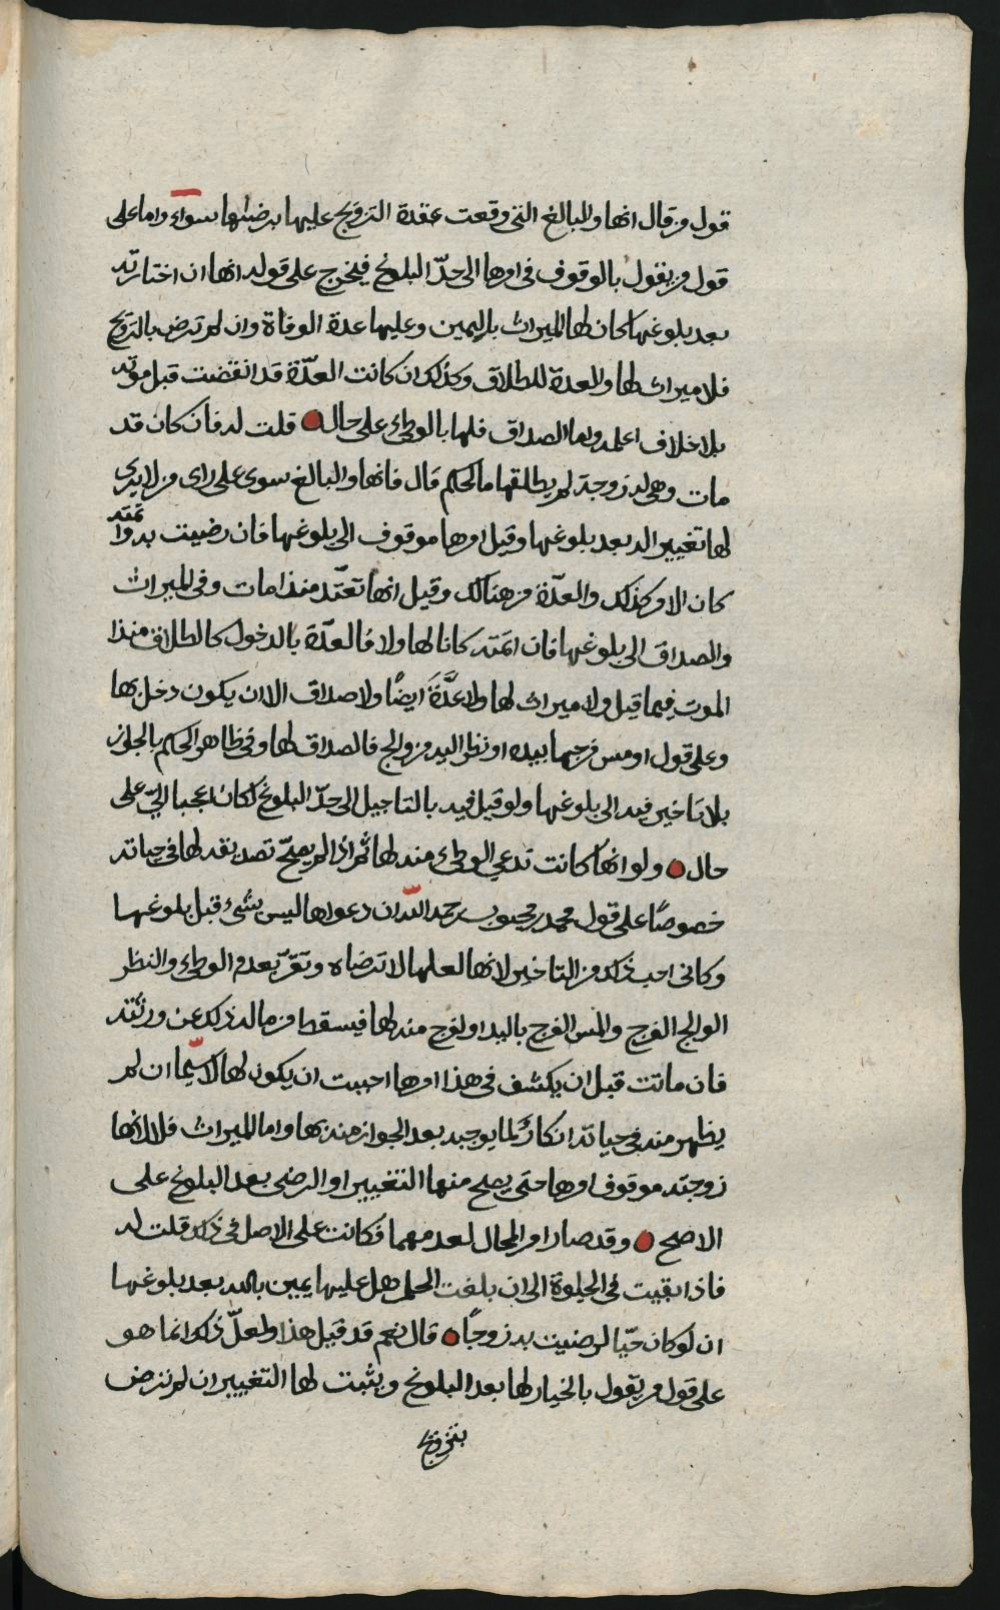 قول من قال انها والبالغ التي وقعت عقدة التزويج عليها برضاها سواء واما على
قول من يقول بالوقوف في امرها الى حدّ البلوغ فيخرج على قوله انها ان اختارته
بعد بلوغها كان لها الميراث باليمين وعليها عدة الوفاة وان لم ترض بالتزويج
فلا ميراث لها والعدة للطلاق وكذلك ان كانت العدّة قد انقضت قبل موته
بلا خلاف اعلمه واما الصداق فلها بالوطئ على حال قلت له فان كان قد
مات وهي له زوجة لم يطلقها ما الحكم قال فانها والبالغ سوى على راى من لا يرى
لها تغييرا له بعد بلوغها وقيل امرها موقوف الى بلوغها فان رضيت به واتمته
كان الامر كذلك والعدّة من هنالك وقيل انها تعتّد منذ مات وفي الميراث
والصداق الى بلوغها فان اتمته كانا لها ولا فالعدّة بالدخول كالطلاق منذ
الموت فيما قيل ولا ميراث لها ولا عدَّةَ ايضًا ولا صداق الا ان يكون دخل بها
وعلى قول او مس فرجها بيده او نظر اليه من والج فالصداق لها وفي ظاهر الحكم بالجائز
بلا تاخير فيه الى بلوغها ولو قيل فيه بالتاجيل الى حدّ البلوغ لكان اعجبا اليّ على
حال ولو انها كانت تدعي الوطئ منه لها ثم اذا لم يصحّ تصديقه لها في حياته
خصوصًا على قول محمد بن محبوب رحمه الله ان دعواها ليس بشئ قبل بلوغها
وكاني احب ذلك من التاخير لانها لعلها لا ترضاه وتقرّ بعدم الوطئ والنظر
الوالج الفرج والمس الفرج باليد او لفرج منه لها فيسقط من ماله ذلك عن ورثته
فان ماتت قبل ان يكشف في هذا امرها احببت ان يكون لها لا سيّما ان لم
يظهر منه في حياته انكار لما يوجبه بعد الجواز منه بها واما الميراث فلا لانها
زوجته موقوف امرها حتى يصح منها التغيير او الرضى بعد البلوغ على
الاصح وقد صار امر المحال لعدمهما فكانت على الاصل في ذلك قلت له
فاذا بقيت في الحياة الى ان بلغت الحلم هل عليها يمين بالله بعد بلوغها
ان لو كان حيّا لرضيت به زوجًا قال نعم قد قيل هذا ولعلّ ذلك انما هو
على قول من يقول بالخيار لها بعد البلوغ ويثبت لها التغيير ان لم ترض
بتزويجها